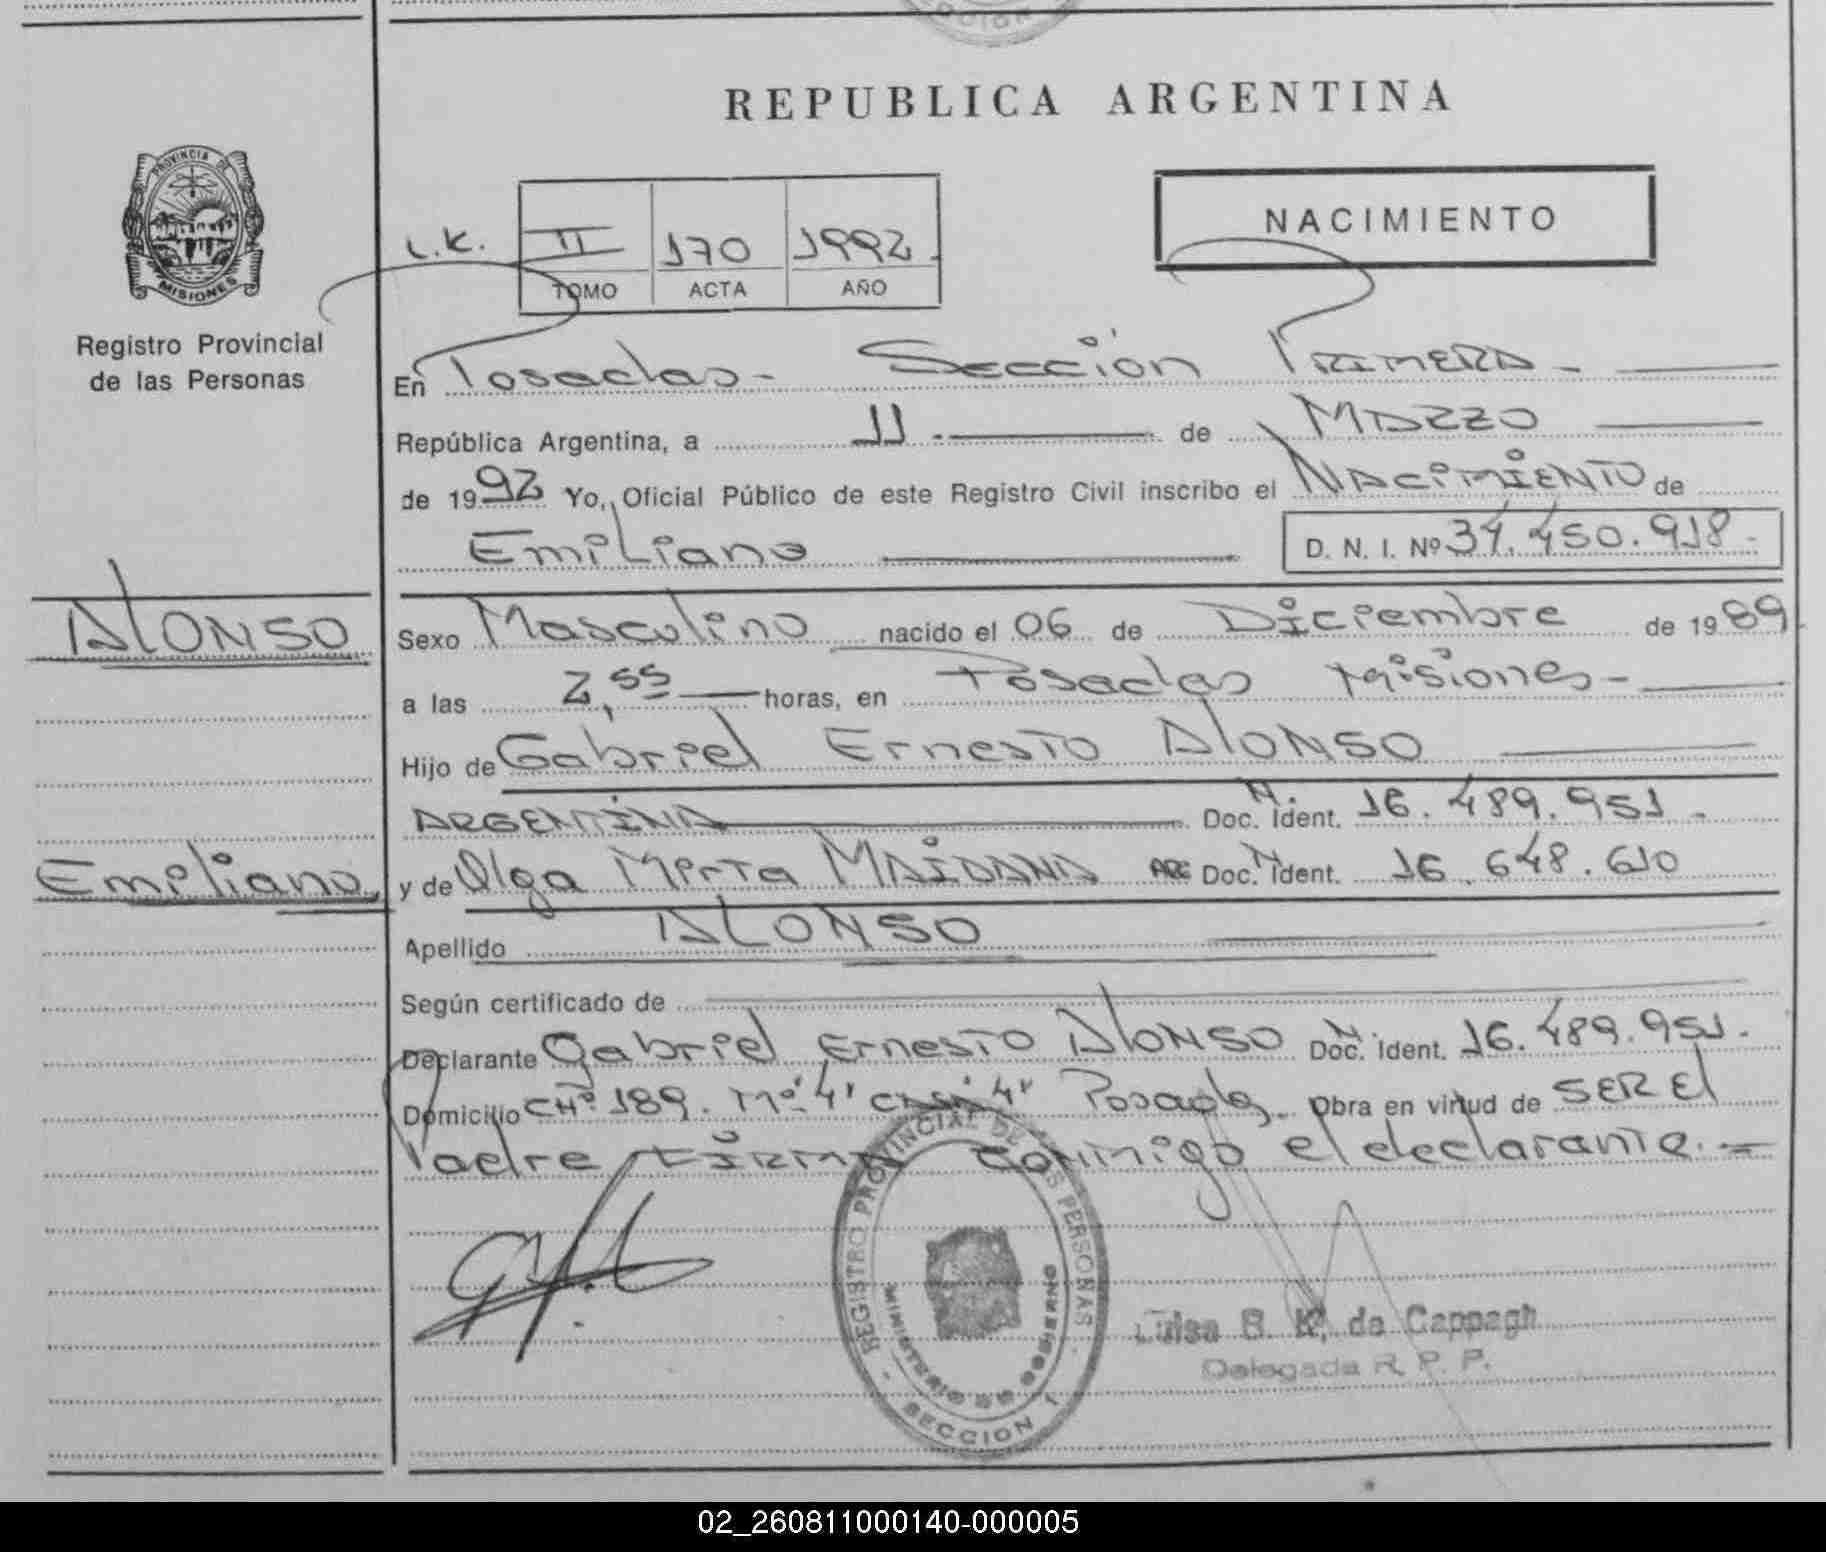 CCION
REPUBLICA ARGENTINA
PROVINCIA DE
MISIONES
Registro Provincial
de las Personas
L.K.
II 170 1992.
TOMO ACTA AÑO
NACIMIENTO
En Posadas - Sección PRIMERA -
República Argentina, a 11 - de MARZO
de 1992 Yo, Oficial Público de este Registro Civil inscribo el NACIMIENTO de
Emiliano D. N. I. Nº 34.450.918.-
ALONSO
Sexo Masculino nacido el 06 de Diciembre de 1989.
a las 2,55 horas, en Posadas Misiones -
Hijo de Gabriel Ernesto ALONSO
ARGENTINA Doc. N. Ident. 16.489.951.-
Emiliano
y de Olga Mirta MAIDANA ARG Doc. N. Ident. 16.648.610
Apellido ALONSO
Según certificado de
Declarante Gabriel Ernesto ALONSO Doc. N. Ident. 16.489.951.
Domicilio CHº 189. Mº 4' CASA 4' Posadas. Obra en virtud de SER El
Padre FIRMA conmigo el declarante.-
REGISTRO PROVINCIAL DE LAS PERSONAS
MINISTERIO DE GOBIERNO
SECCION 1
Luisa B. K. de Cappagli
Delegada R. P. P.
02_260811000140-000005